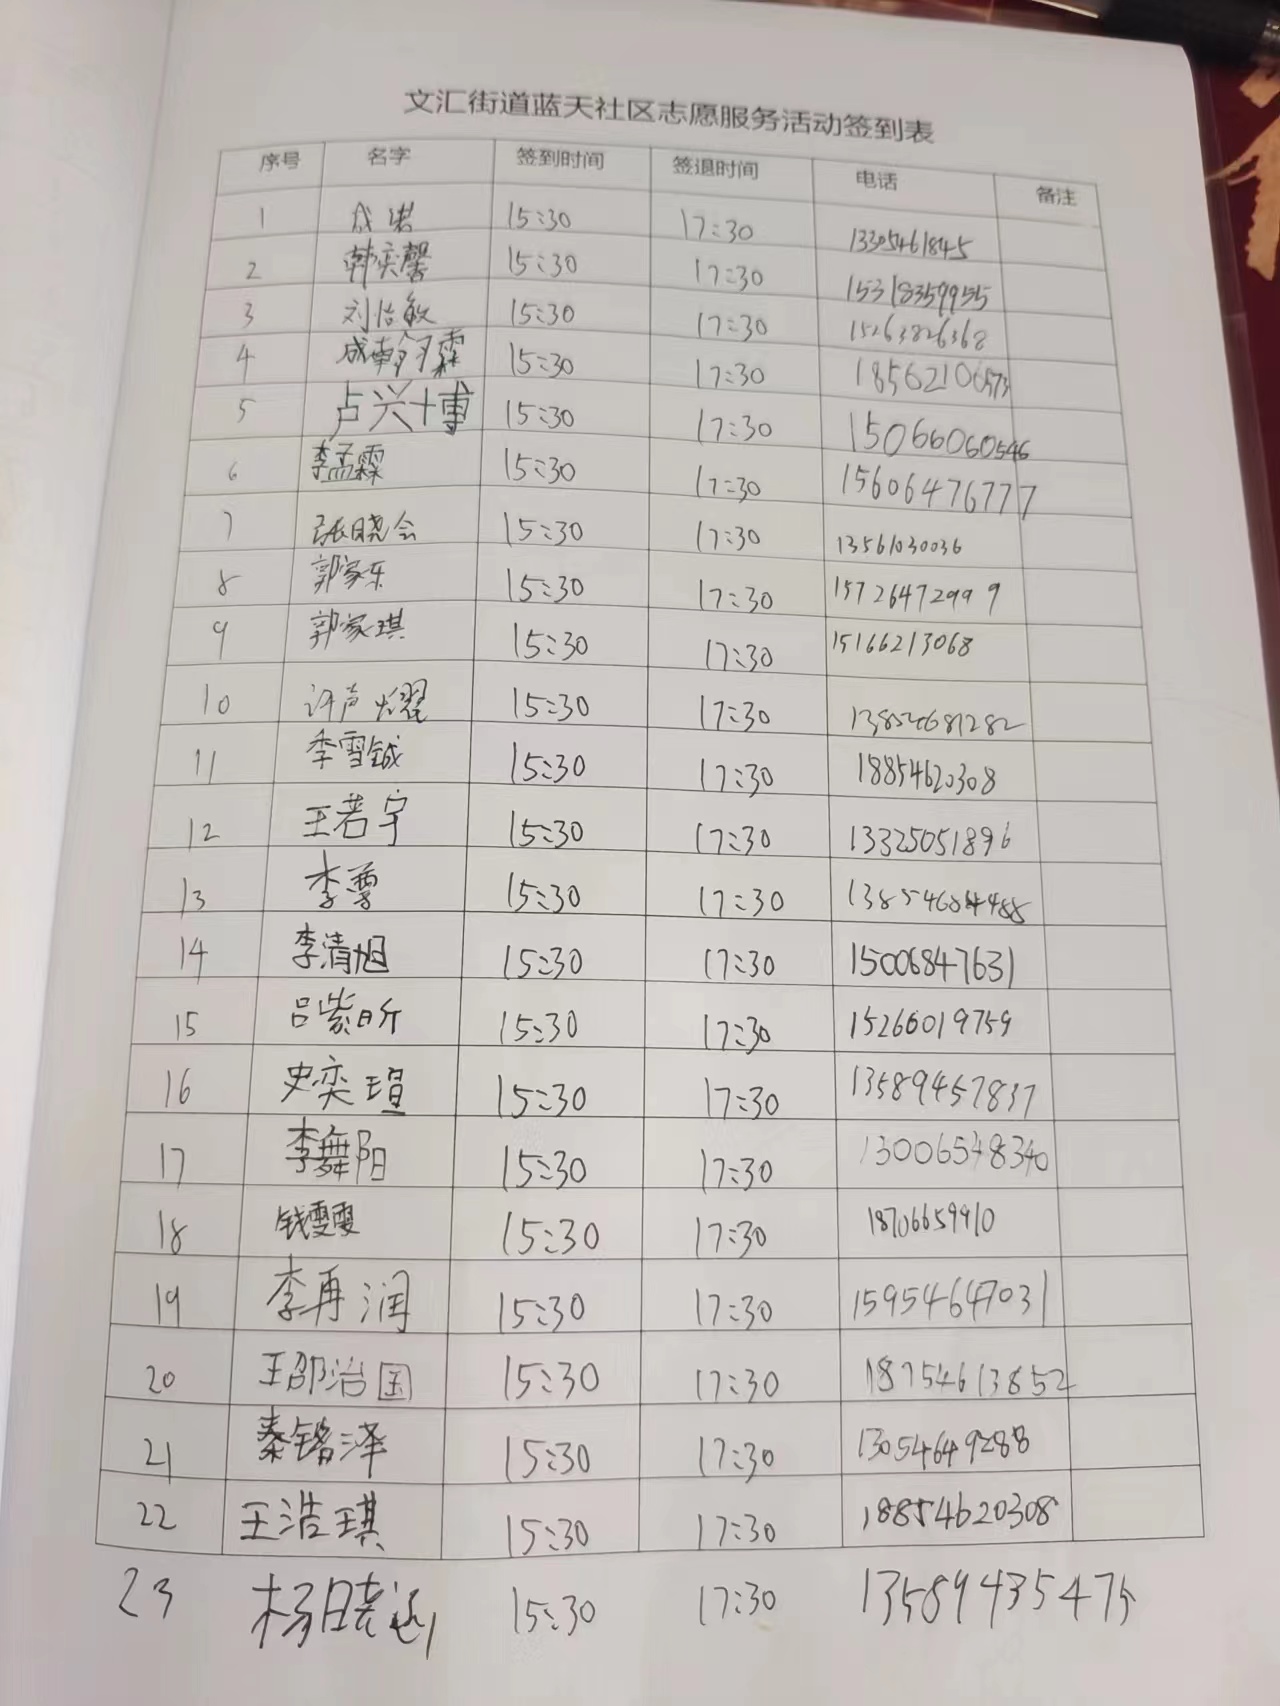 文汇街道蓝天社区志愿服务活动签到表
序号 名字 签到时间 签退时间 电话 备注
1 成诺 15:30 17:30 13305461845
2 韩奕馨 15:30 17:30 15318359955
3 刘怡敏 15:30 17:30 15263826368
4 成翰霖 15:30 17:30 18562106573
5 卢兴博 15:30 17:30 15066060546
6 李孟霖 15:30 17:30 15606476777
7 张晓会 15:30 17:30 13561030036
8 郭家乐 15:30 17:30 15726472999
9 郭家琪 15:30 17:30 15166213068
10 许声耀 15:30 17:30 13854681282
11 李雪铖 15:30 17:30 18854620308
12 王若宇 15:30 17:30 13325051896
13 李 15:30 17:30 13854684488
14 李清旭 15:30 17:30 15006847631
15 吕紫昕 15:30 17:30 15266019759
16 史奕瑄 15:30 17:30 13589457837
17 李舞阳 15:30 17:30 13006548340
18 钱雯雯 15:30 17:30 18706659910
19 李再润 15:30 17:30 15954647031
20 王邵治国 15:30 17:30 18754613852
21 秦铭泽 15:30 17:30 13054649288
22 王浩琪 15:30 17:30 18854620308
23 杨晓 15:30 17:30 13589435475